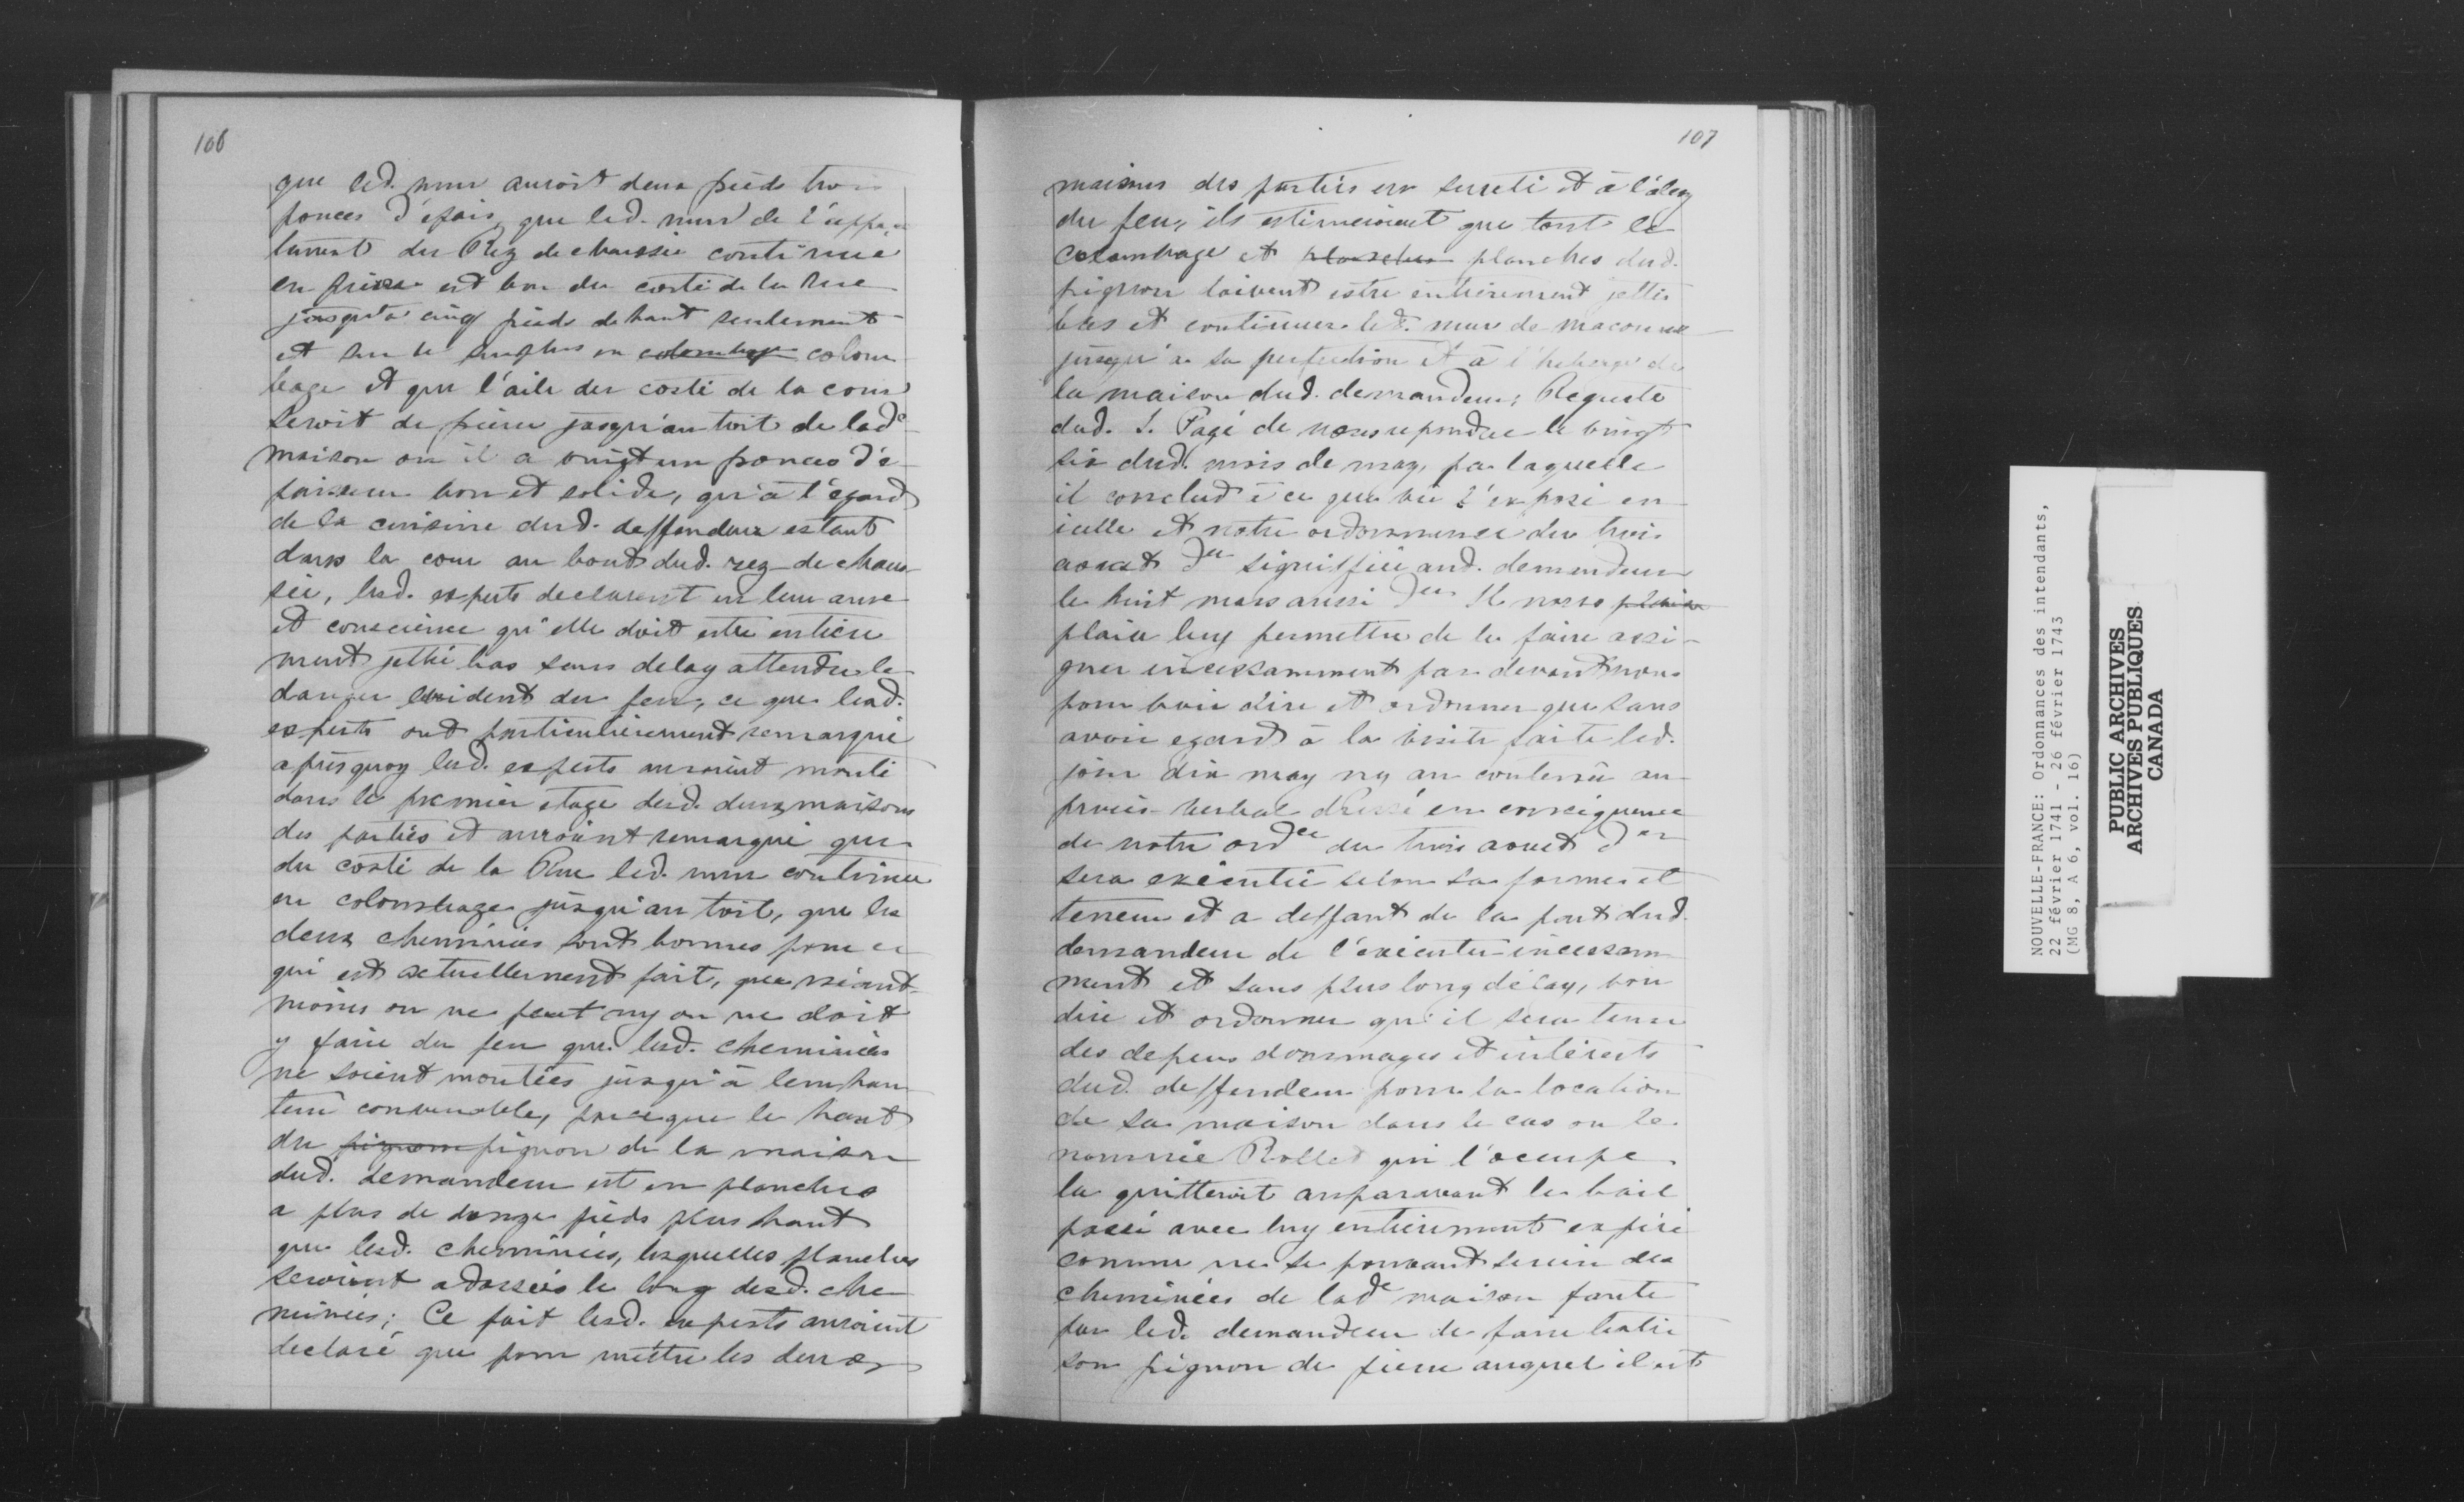 106
que led. mur auroit deux pieds trois
pouces d'epais, que led. mur de l'appar
tement du Rez de chaussée continué
en pierre est bon du costé de la Rue
jusqu'à cinq pieds de haut seulement
et sur le surplus en colombage colom
bage et que l'aile du costé de la cour
seroit de pierre jusqu'au toit de lade
maison ou il a vingt un pouces d'é-
paisseur bon et solide, qu'à l'egard
de la cuisine dud. deffendeur estant
dans la cour au bout dud. rez-de-chaus
sée, lesd. experts declarent en leur ame
et conscience qu'elle doit estre entiere
ment jettée bas sans delay attendu le
danger evident du feu, ce que lesd.
experts ont particulièrement remarqué
après quoy lesd. experts auroient monté
dans le premier etage desd. deux maisons
des parties et auroient remarqué que
du costé de la Rue led. mur continue
en colombage jusqu'au toit, que les
deux cheminées sont bonnes pour ce
qui est actuellement fait, que néant-
moins on ne peut ny on ne doit
y faire du feu que lesd. cheminées
ne soient montées jusqu'à leur hau
teur convenable, parceque le haut
du pignon pignon de la maison
dud. demandeur est en planches
a plus de douze pieds plus haut
que lesd. cheminées, lesquelles planches
seroient adossées le long desd. che
minées; Ce fait lesd. experts auroient
declaré que pour mettre les deux
107
maisons des parties en sureté et à l'abry
du feu, ils estimeroient que tout le
colombage et planches planches dud.
pignon doivent estre entièrement jettés
bas et continuer led. mur de maconne
jusqu'a sa perfection et à l'heberge de
la maison dud. demandeur; Requete
dud. S. Pagé de nous repondue le vingt
six dud. mois de may, par laquelle
il conclud à ce que vû l'exposé en
icelle et notre ordonnance du trois
aoust der signiffiée aud. demandeur
le huit mars aussi der Il nous plaise
plaise luy permettre de le faire assi-
gner incessamment par devant nous
pour voir dire et ordonner que sans
avoir egard à la visite faite led.
jour dix may ny au contenu au
procès-verbal dressé en consequence
de notre ordce du trois aoust der
sera executée selon sa forme et
teneur et a deffaut de la part dud.
demandeur de l'exécuter incessam
ment et sans plus long délay, voir
dire et ordonner qu'il sera tenu
des depens dommages et intérests
dud. deffendeur pour la location
de sa maison dans le cas ou le
nommé Rollet qui l'occupe
la quitteroit auparavant le bail
passé avec luy entierement expiré
comme ne se pouvant servir des
cheminées de lade maison faute
par led. demandeur de faire batir
son pignon de pierre auquel il est
NOUVELLE-FRANCE: Ordonnances des intendants,
22 février 1741 - 26 février 1743
(MG 8, A 6, vol. 16)
PUBLIC ARCHIVES
ARCHIVES PUBLIQUES
CANADA